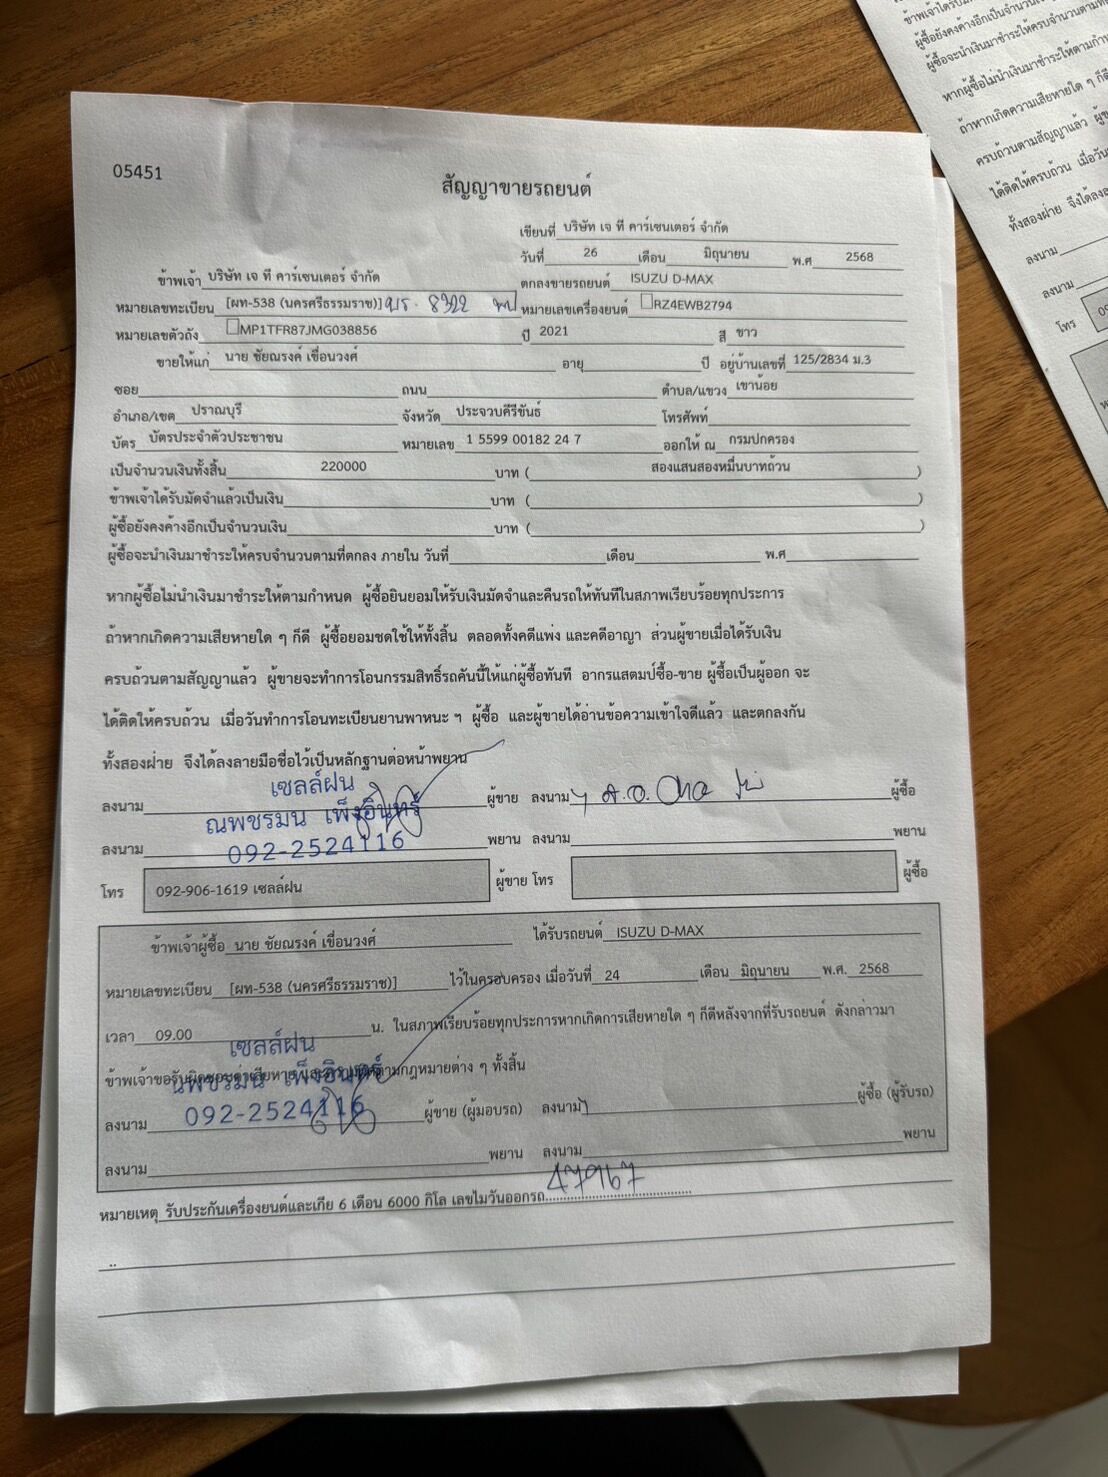 05451
สัญญาขายรถยนต์
เขียนที่ บริษัท เจ ที คาร์เซนเตอร์ จำกัด
วันที่ 26 เดือน มิถุนายน พ.ศ 2568
ข้าพเจ้า บริษัท เจ ที คาร์เซนเตอร์ จำกัด ตกลงขายรถยนต์ ISUZU D-MAX
หมายเลขทะเบียน [ผท-538 (นครศรีธรรมราช)] 8322 หมายเลขเครื่องยนต์ RZ4EWB2794
หมายเลขตัวถัง MP1TFR87JMG038856 ปี 2021 สี ขาว
ขายให้แก่ นาย ชัยณรงค์ เขื่อนวงศ์ อายุ ปี อยู่บ้านเลขที่ 125/2834 ม.3
ซอย ถนน ตำบล/แขวง เขาน้อย
อำเภอ/เขต ปราณบุรี จังหวัด ประจวบคีรีขันธ์ โทรศัพท์
บัตร บัตรประจำตัวประชาชน หมายเลข 1 5599 00182 24 7 ออกให้ ณ กรมปกครอง
เป็นจำนวนเงินทั้งสิ้น 220000 บาท ( สองแสนสองหมื่นบาทถ้วน )
ข้าพเจ้าได้รับมัดจำแล้วเป็นเงิน บาท ( )
ผู้ซื้อยังคงค้างอีกเป็นจำนวนเงิน บาท ( )
ผู้ซื้อจะนำเงินมาชำระให้ครบจำนวนตามที่ตกลง ภายใน วันที่ เดือน พ.ศ
หากผู้ซื้อไม่นำเงินมาชำระให้ตามกำหนด ผู้ซื้อยินยอมให้รับเงินมัดจำและคืนรถให้ทันทีในสภาพเรียบร้อยทุกประการ
ถ้าหากเกิดความเสียหายใด ๆ ก็ดี ผู้ซื้อยอมชดใช้ให้ทั้งสิ้น ตลอดทั้งคดีแพ่ง และคดีอาญา ส่วนผู้ขายเมื่อได้รับเงิน
ครบถ้วนตามสัญญาแล้ว ผู้ขายจะทำการโอนกรรมสิทธิ์รถคันนี้ให้แก่ผู้ซื้อทันที อากรแสตมป์ซื้อ-ขาย ผู้ซื้อเป็นผู้ออก จะ
ได้ติดให้ครบถ้วน เมื่อวันทำการโอนทะเบียนยานพาหนะ ฯ ผู้ซื้อ และผู้ขายได้อ่านข้อความเข้าใจดีแล้ว และตกลงกัน
ทั้งสองฝ่าย จึงได้ลงลายมือชื่อไว้เป็นหลักฐานต่อหน้าพยาน
เซลล์ฝน
ลงนาม ผู้ขาย ลงนาม ผู้ซื้อ
ณพชรมน เพ็งอินทร์
ลงนาม 092-2524116 พยาน ลงนาม พยาน
โทร 092-906-1619 เซลล์ฝน ผู้ขาย โทร ผู้ซื้อ
ข้าพเจ้าผู้ซื้อ นาย ชัยณรงค์ เขื่อนวงศ์ ได้รับรถยนต์ ISUZU D-MAX
หมายเลขทะเบียน [ผท-538 (นครศรีธรรมราช)] ไว้ในครอบครอง เมื่อวันที่ 24 เดือน มิถุนายน พ.ศ. 2568
เวลา 09.00 น. ในสภาพเรียบร้อยทุกประการหากเกิดการเสียหายใด ๆ ก็ดีหลังจากที่รับรถยนต์ ดังกล่าวมา
เซลล์ฝน
ข้าพเจ้าขอรับผิดชอบค่าเสียหาย ตามกฎหมายต่าง ๆ ทั้งสิ้น
ณพชรมน เพ็งอินทร์
ลงนาม 092-2524116 ผู้ขาย (ผู้มอบรถ) ลงนาม ผู้ซื้อ (ผู้รับรถ)
ลงนาม พยาน ลงนาม พยาน
หมายเหตุ รับประกันเครื่องยนต์และเกีย 6 เดือน 6000 กิโล เลขไมวันออกรถ 47967